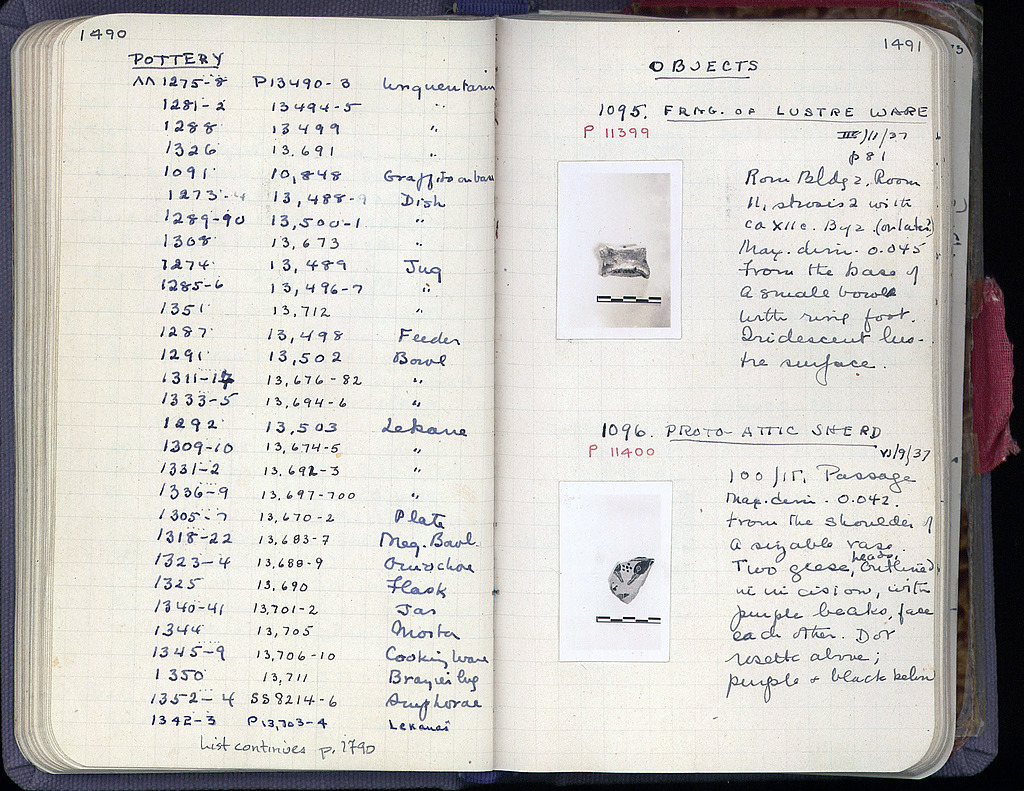 1490
POTTERY
ΛΛ 1275-8 P13490-3 Unquentaria
1281-2 13494-5 "
1288 13499 "
1326 13,691 "
1091 10,848 Graffito on base
1273-4 13,488-9 Dish
1289-90 13,500-1 "
1308 13,673 "
1274 13,489 Jug
1285-6 13,496-7 "
1351 13,712 "
1287 13,498 Feeder
1291 13,502 Bowl
1311-17 13,676-82 "
1333-5 13,694-6 "
1292 13,503 Lekane
1309-10 13,674-5 "
1331-2 13.692-3 "
1336-9 13,697-700 "
1305-7 13,670-2 Plate
1318-22 13,683-7 Meg. Bowl
1323-4 13,688-9 Oinochoe
1325 13,690 Flask
1340-41 13,701-2 Jar
1344 13,705 Mortar
1345-9 13,706-10 Cooking Ware
1350 13,711 Brazier lug
1352-4 SS8214-6 Amphorae
1342-3 P13,703-4 Lekanai
List continues p. 1790
1491
OBJECTS
1095. FRAG. OF LUSTRE WARE
P 11399
III/11/37
p 81
Rom Bldg 2, Room
11, strosis 2 with
ca XII c. Byz. (or later)
Max. dim. 0.045
From the base of
a small bowl
with ring foot.
Iridescent lus-
tre surface.
1096. PROTO-ATTIC SHERD
P 11400
VI/9/37
100/ΙΓ, Passage
Max. dim. 0.042.
From the shoulder of
a sizable vase.
Two geese, heads outlined
in incision, with
purple beaks, face
each other. Dot
rosette above;
purple + black below